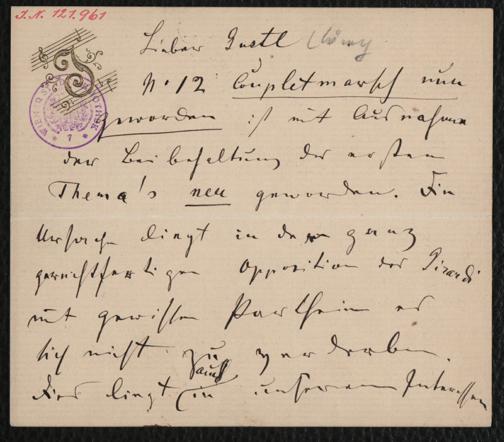 I.N. 121.961
Lieber Gustl (Lewy
N. 12 Coupletmarsch nun
geworden ist mit Ausnahme
der Beibehaltung des ersten
Thema's neu geworden. Die
Ursache liegt in der ganz
gerechtfertigten Opposition des Girardi
mit gewissen Partheien es
sich nicht zu verderben.
Dies liegt auch in unserem Interessen